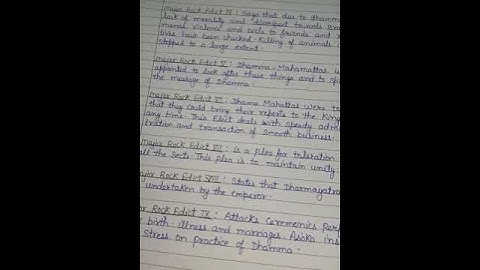 Major Rock Edict IV: Says that due to dhamma
lack of morality and disrespect towards
manas, violence and evils to friends and
tives have been checked. Killing of animals
stopped to a large extent.
Major Rock Edict V: Dhamma-Mahamattas
appointed to look after these things and to
the message of Dhamma.
Major Rock Edict VI: Dhama Mahattas were
that they could bring their reports to the King
any time. This Edict deals with speedy admi
tration and transaction of smooth business.
Major Rock Edict VII: is a plea for toleration
all the Sects. This plea is to maintain unity.
ajor Rock Edict VIII: States that Dharmayatra
undertaken by the emperor.
or Rock Edict IX: Attacks Ceremonies Per
birth, illness and marriages. Asoka ins
Stress on practice of Dhamma.